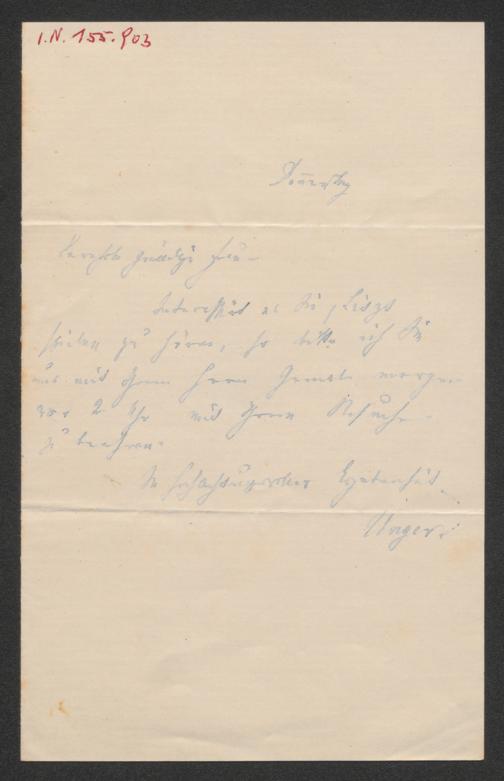 I.N. 155.903
Donnerstag
Verehrte gnädige Frau
Interessirt es Sie, Liszt
spielen zu hören, so bitte ich Sie
uns mit Ihrem Herrn Gemahl morgen
vor 2 Uhr mit Ihrem Besuche
zu beehren.
In hochachtungsvoller Ergebenheit
Unger